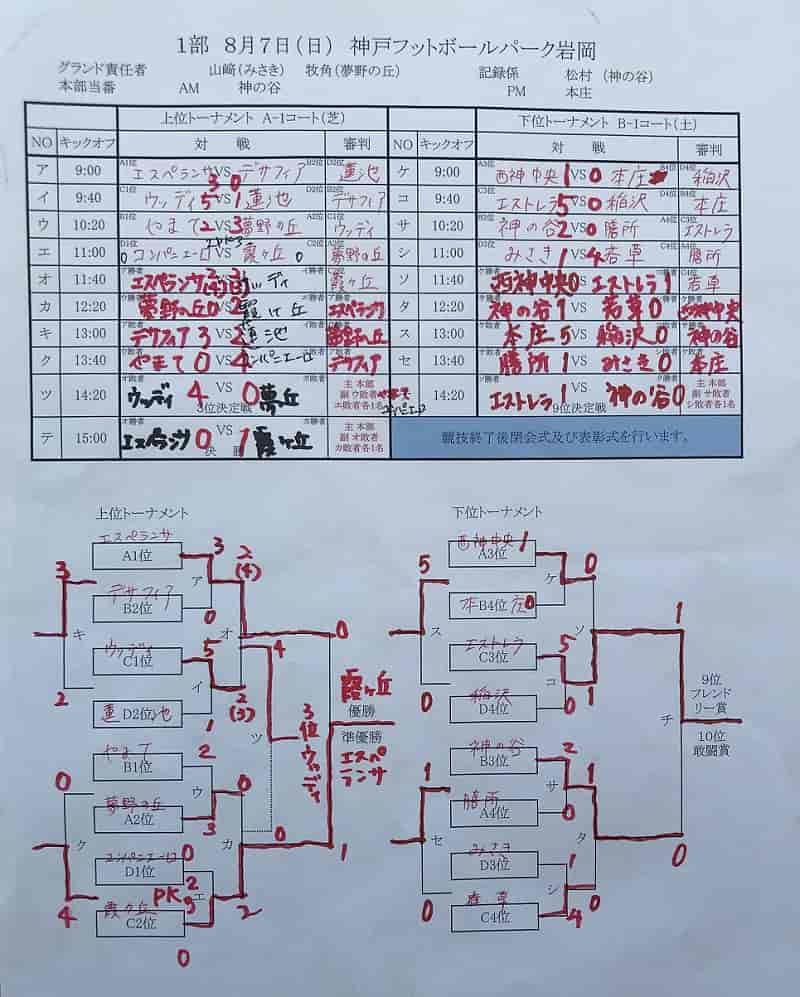 1部 8月7日(日) 神戸フットボールパーク岩岡
グランド責任者 山﨑(みさき) 牧角(夢野の丘) 記録係 松村 (神の谷)
本部当番 AM 神の谷 PM 本庄
上位トーナメント A-1コート(芝) 下位トーナメント B-1コート(土)
NO キックオフ 対 戦 審判 NO キックオフ 対 戦 審判
ア 9:00 エスペランサ 3 VS 0 デサフィア 蓮池 ケ 9:00 西神中央 1 VS 0 本庄 稲沢
イ 9:40 ウッディ 5 VS 1 蓮池 デサフィア コ 9:40 エストレラ 5 VS 0 稲沢 本庄
ウ 10:20 やまて 2 VS 3 夢野の丘 ウッディ サ 10:20 神の谷 2 VS 0 膳所 エストレラ
エ 11:00 0 コンパニエーロ VS 霞ヶ丘 0 夢野の丘 シ 11:00 みさき 1 VS 4 若草 膳所
オ 11:40 エスペランサ 2(4) 2(3) ウッディ 霞ヶ丘 ソ 11:40 西神中央 0 エストレラ 1 若草
カ 12:20 夢野の丘 0 2 霞ヶ丘 エスペランサ タ 12:20 神の谷 1 若草 0 西神中央
キ 13:00 デサフィア 3 2 蓮池 夢野の丘 ス 13:00 本庄 5 稲沢 0 神の谷
ク 13:40 やまて 0 4 コンパニエーロ デサフィア セ 13:40 膳所 1 みさき 0 本庄
ツ 14:20 ウッディ 4 VS 0 夢丘 3位決定戦 主 本部 副 ウ敗者 エ敗者各1名 14:20 エストレラ 1 VS 神の谷 0 9位決定戦 主 本部 副 サ敗者 シ敗者各1名
テ 15:00 エスペランサ 0 VS 1 霞ヶ丘 決 勝 主 本部 副 オ敗者 カ敗者各1名 競技終了後閉会式及び表彰式を行います。
上位トーナメント 下位トーナメント
エスペランサ A1位 3
デサフィア B2位 0
ア
ウッディ C1位 5
蓮池 D2位 1
イ
キ 3 2
オ 2 (4) 2 (3)
やまて B1位 2
夢野の丘 A2位 3
ウ
コンパニエーロ D1位 0 2
霞ヶ丘 C2位 PK 3 0
エ
ク 0 4
カ 0 2
ツ 4 0
3位 ウッディ
0 1
霞ヶ丘
優勝
準優勝
エスペランサ
西神中央 A3位 1
本庄 B4位 0
ケ
エストレラ C3位 5
稲沢 D4位 0
コ
ス 5 0
ソ 0 1
神の谷 B3位 2
膳所 A4位 0
サ
みさき D3位 1
若草 C4位 4
シ
セ 1 0
タ 1 0
チ 1 0
9位
フレンド
リー賞
10位
敢闘賞